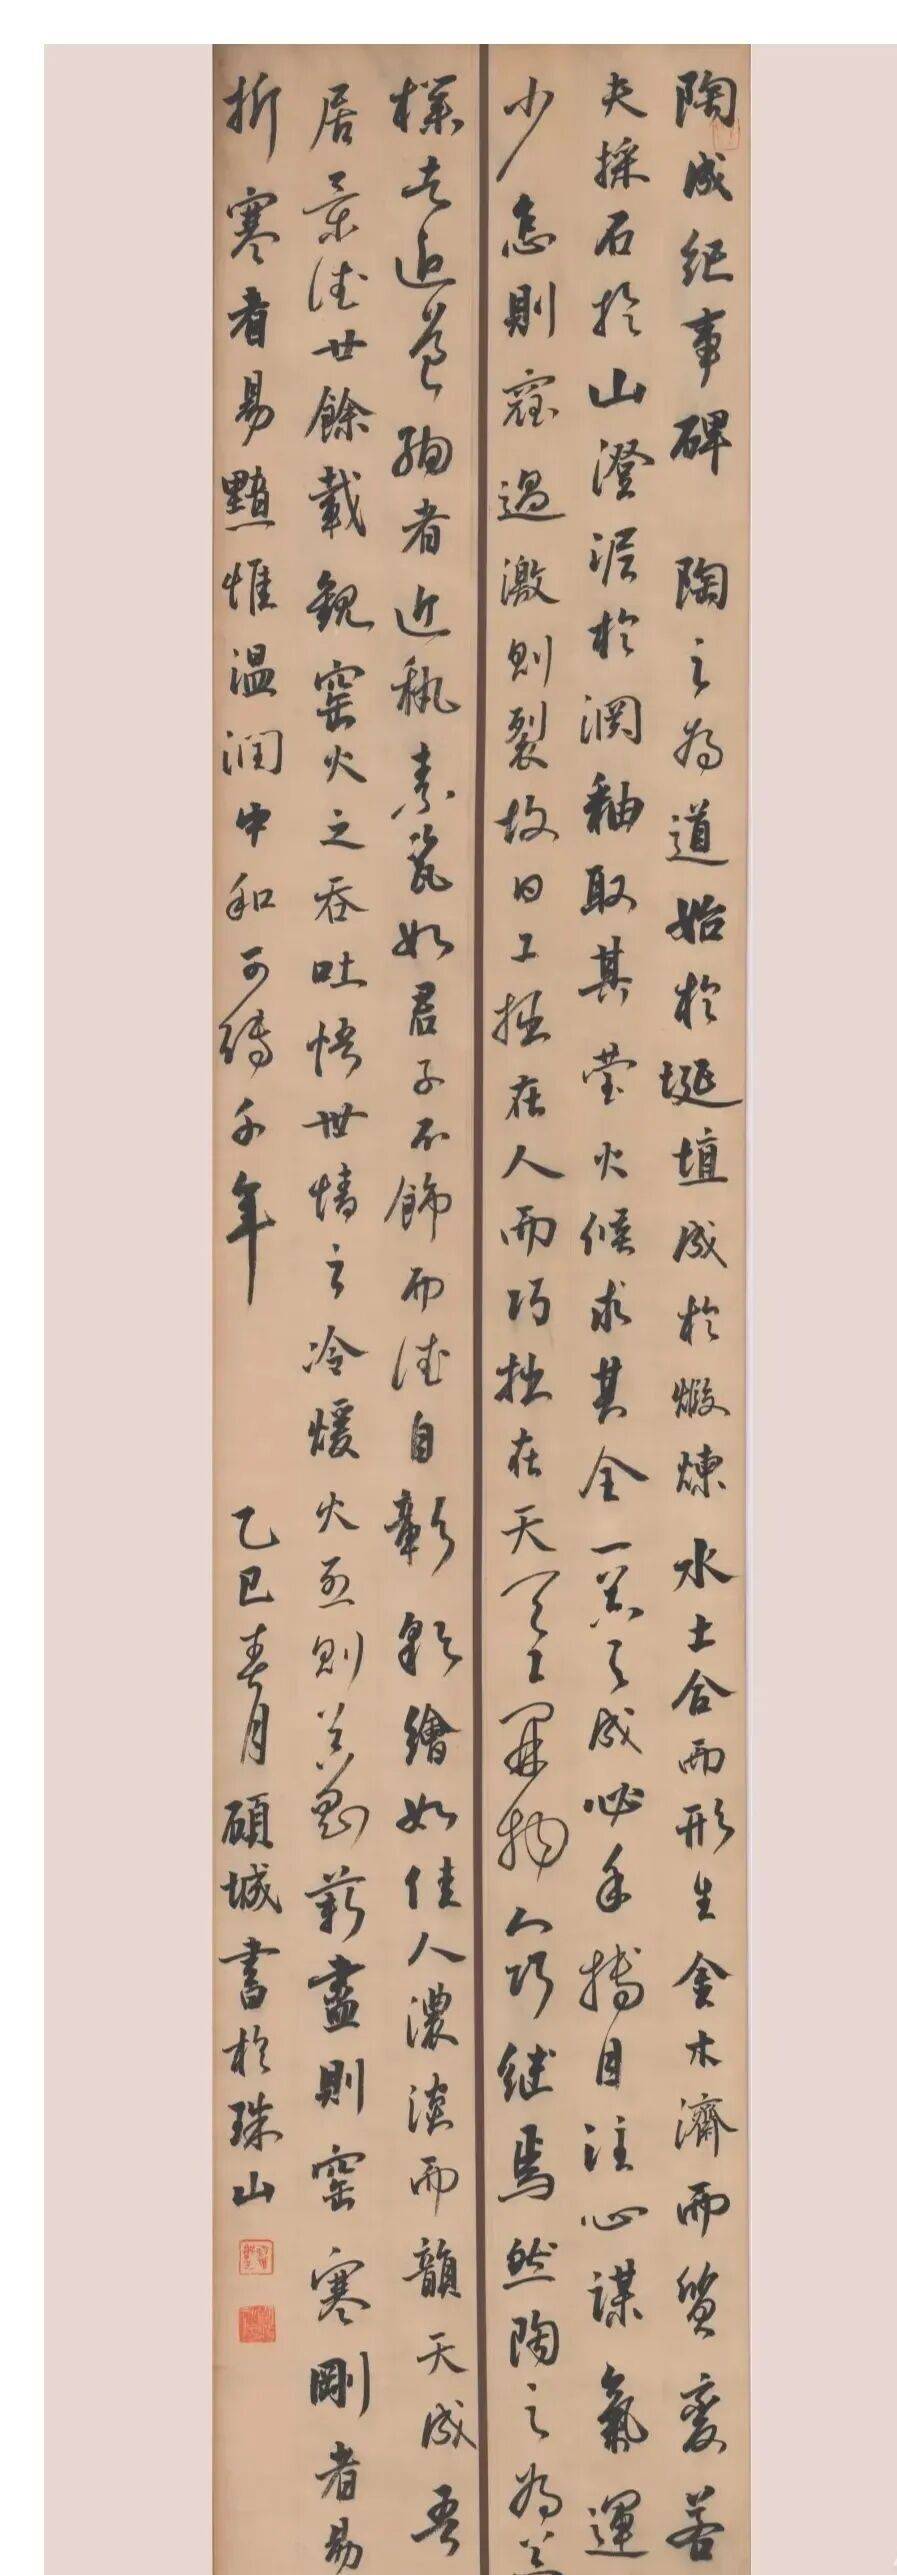 陶成紀事碑　陶之為道始於埏埴成於煅煉水土合而形生金木濟而質變若
夫採石於山澄泥於澗釉取其瑩火候求其全一器之成必手摶目注心謀氣運
少怠則窳過激則裂故曰工拙在人而巧拙在天天工開物人巧繼焉然陶之為
樸者近 絢者近 素瓷如君子不飾而德自彰彩繪如佳人濃淡而韻天成吾
居景德廿餘載觀窯火之吞吐悟世情之冷暖火烈則器 薪盡則窯寒剛者易
折寒者易黯惟溫潤中和可傳千年
乙巳春月碩城書於珠山